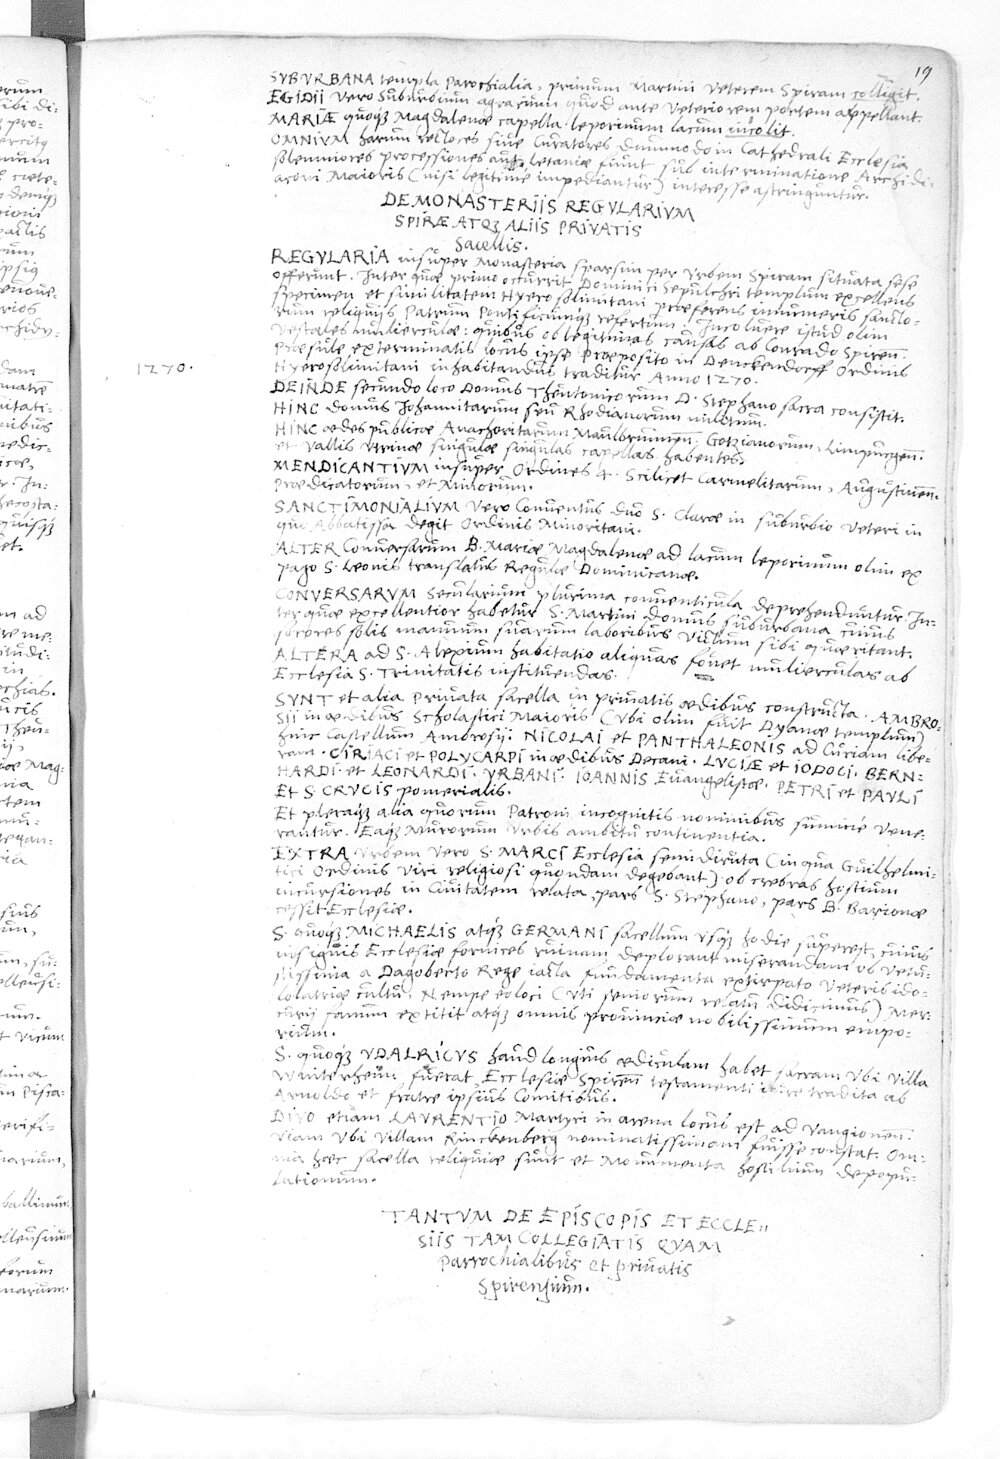 19
SVBVRBANA templa Parochialia, primum Martini veterem Spiram colligit.
EGIDII vero suburbium agrarium quod ante veteriorem portem appellant.
MARIÆ quoqз Magdalenæ capella leporinum lacum incolit.
OMNIVM harum rectores siue Curatores dummodo in Cathedrali Ecclesia
solenniores processiones aut letaniæ fiunt sub interminatione Archidi-
aconi Maioris (nisi legitime impediantur) interesse astringuntur.
DE MONASTERIIS REGVLARIVM
SPIRÆ ATQз ALIIS PRIVATIS
Sacellis.
REGVLARIA insuper Monasteria sparsim per Vrbem Spiram situata sese
offerunt. Inter quæ primo occurrit Dominici Sepulchri templum excellens
specimen et similitatem Hyerosolimitani præferens innumeris sancto-
rum reliquijs Patrum Pontificumqз refertum. Incoluere istud olim
Vestales mulierculæ: quibus ob legitimas causas ab Conrado Spiren.
Præsule exterminatis locus ipse Præposito in Denckendorff Ordinis
1270.
Hyerosolimitani inhabitandus traditur Anno 1270.
DEINDE secundo loco Domus Theutonicorum D. Stephano sacra consistit.
HINC domus Johannitarum seu Rhodianorum militum.
HINC ædes publicæ Anachoritarum Maulbrunnen. Gotzianorum, Limpurgen.
et Vallis Vtrinæ singulæ singulas capellas habentes.
MENDICANTIVM insuper Ordines 4. Scilicet Carmelitarum, Augustinen.
Prædicatorum, et Minorum.
SANCTIMONIALIVM vero Conuentus duo S. Claræ in suburbio veteri in
quo Abbatissa degit Ordinis Minoritani.
ALTER Conuersarum B. Mariæ Magdalenæ ad lacum leporinum olim ex
pago S. Leonis translatus Regulæ Dominicanæ.
CONVERSARVM Secularium plurima conuenticula deprehenduntur. In-
ter quæ excellentior habetur S. Martini domus suburbana cuius
sorores solis manuum suarum laboribus victum sibi quæritant.
ALTERA ad S. Alexium habitatio aliquas fouet mulierculas ab
Ecclesia S. Trinitatis instituendas.
SVNT et alia Priuata sacella in priuatis ædibus constructa. AMBRO-
SII in ædibus Scholastici Maioris (vbi olim fuit Dyanæ templum)
hinc Castellum Ambrosij. NICOLAI et PANTHALEONIS ad Curiam libe-
ram. CIRIACI et POLYCARPI in ædibus Decani. LVCIÆ et IODOCI. BERN-
HARDI. et LEONARDI. VRBANI. IOANNIS Euangelistæ. PETRI et PAVLI
Et S. CRVCIS pomerialis.
Et pleraqз alia quorum Patroni incognitis nominibus summe vene-
rantur. Eaqз murorum Vrbis ambitu continentia.
EXTRA Vrbem vero S. MARCI Ecclesia semidiruta (in qua Guilhelmi-
tici Ordinis viri religiosi quondam degebant) ob crebras hostium
incursiones in Ciuitatem relata, pars S. Stephano, pars B. Barionæ
cessit Ecclesiæ.
S. quoqз MICHAELIS atqз GERMANI sacellum vsqз hodie superest, cuius
insignis Ecclesiæ fornices ruinam deplorant miserandam ob vetu-
stissima a Dagoberto Rege iacta fundamenta extirpato veteris ido-
lolatriæ cultu. Nempe eo loci (vti seniorum relatu didicimus) Mer-
curij fanum extitit atqз omnis prouinciæ nobilissimum empo-
rium.
S. quoqз VDALRICVS haud longius ædiculam habet sacram vbi villa
Winterheim, fuerat, Ecclesiæ Spiren testamenti iure tradita ab
Arnoldo et fratre ipsius Comitibus.
DIVO etiam LAVRENTIO Martyri in arena locus est ad Vangionen.
viam vbi villam Rinckenberg nominatissimam fuisse constat. Om-
nia hæc sacella reliquiæ sunt et Monumenta hostilium depopu-
lationum.
TANTVM DE EPISCOPIS ET ECCLE-
SIIS TAM COLLEGIATIS QVAM
Parrochialibus et priuatis
Spirensium.